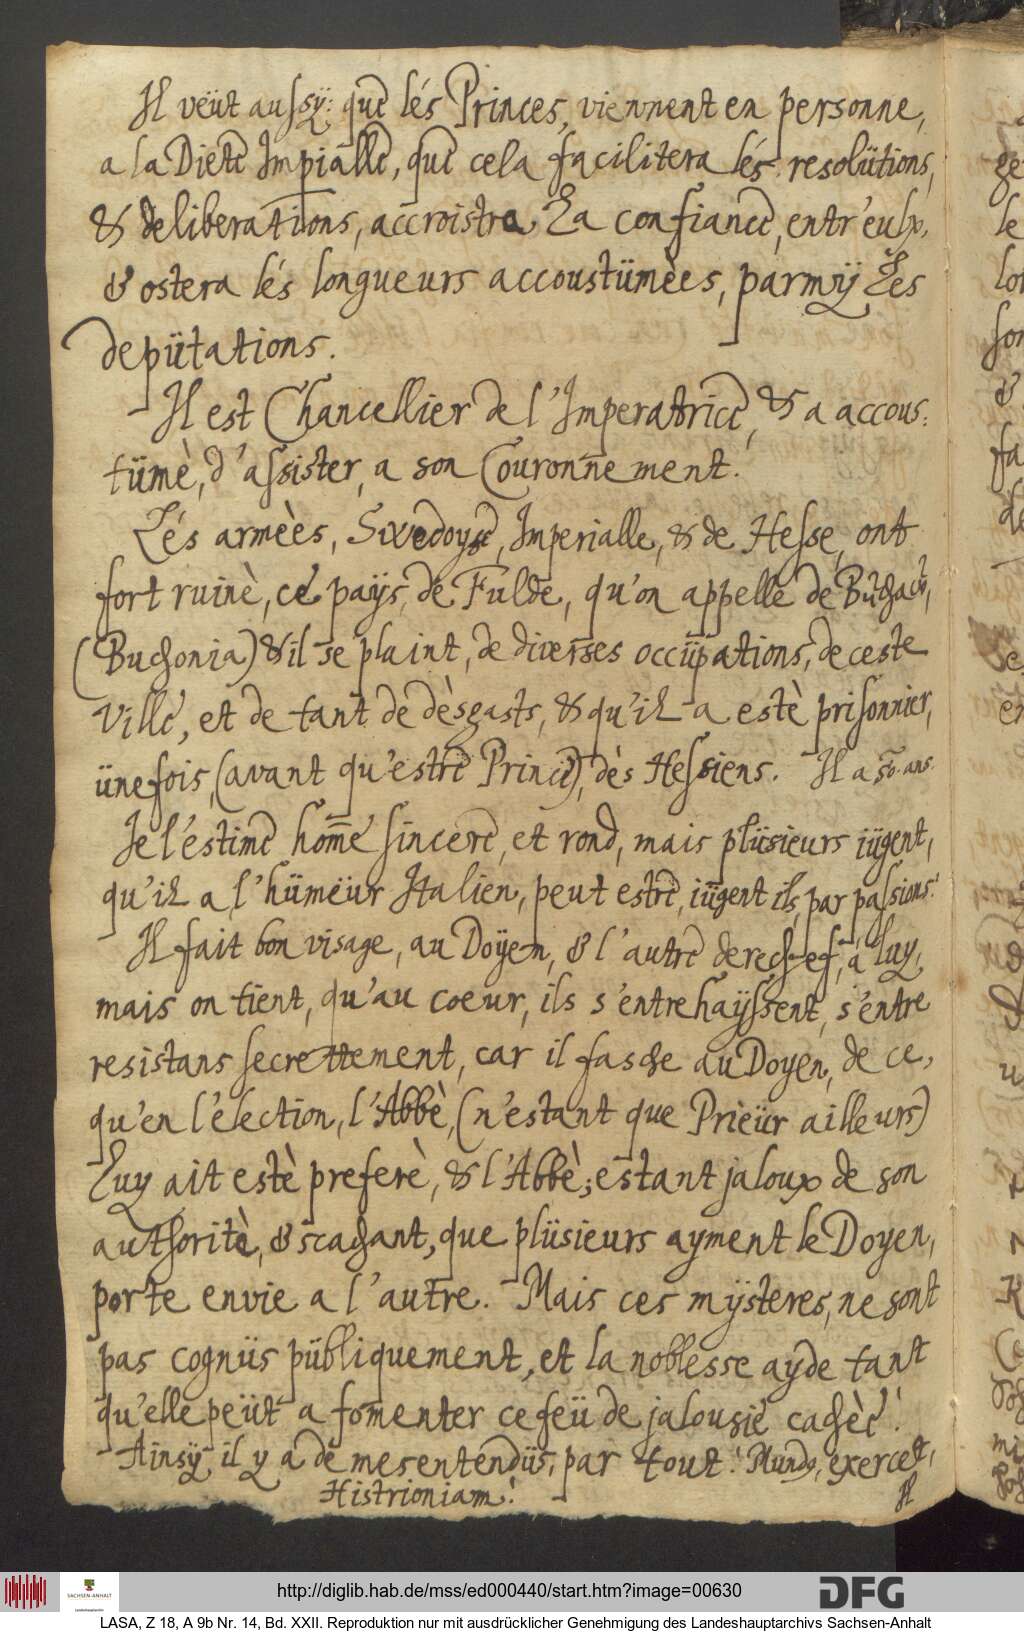 Il veüt aussÿ: que lés Princes, viennent en personne,
a la Diete Impialle, que cela facilitera lés resolütions,
& deliberations, accroistra La confiance, entr'eulx,
& ostera lés longueurs accoustümèes, parmÿ Les
depütations.
Il est Chancellier de l'Imperatrice, & a accous:
tümè, d'assister, a son Couronnement.
Lés armèes, Swedoyse, Imperialle, & de Hesse, ont
fort ruinè, ce paÿs, de Fulde, qu'on appelle de
(Buchonia) & il se plaint, de diverses occüpations, de ceste
Ville, et de tant de dèsgasts, & qu'il a estè prisonnier,
üne fois, (avant qu'estre Prince), dès Hessiens. Il a 50. ans.
Je l'éstime home sincere, et rond, mais plüsieurs iügent,
qu'il a l'hümeür Italien, peut estre, iügent ils, par passions.
Il fait bon visage, au Doÿen, & l'autre derechef, a luy,
mais on tient, qu'au coeur, ils s'entrehaÿssent, s'éntre
resistans secrettement, car il fasche au Doyen, de ce,
qu'en l'élection, l'Abbè, (n'estant que Prieür ailleurs)
Luy ait estè preferè, & l'Abbè; estant jaloux de son
authoritè, & scachant, que plüsieurs ayment le Doyen,
porte envie a l'autre. Mais ces mÿsteres, ne sont
pas cognüs püb̈liquement, et la noblesse ayde tant
qu'elle peüt a fomenter ce feü de jalousie cachèe!
Ainsÿ il y a de mesentendüs, par tout! Mundus, exercet,
Histrioniam!
Il
http://diglib.hab.de/mss/ed000440/start.htm?image=00630
SACHSEN-ANHALT
Landeshauptarchiv
DFG
LASA, Z 18, A 9b Nr. 14, Bd. XXII. Reproduktion nur mit ausdrücklicher Genehmigung des Landeshauptarchivs Sachsen-Anhalt